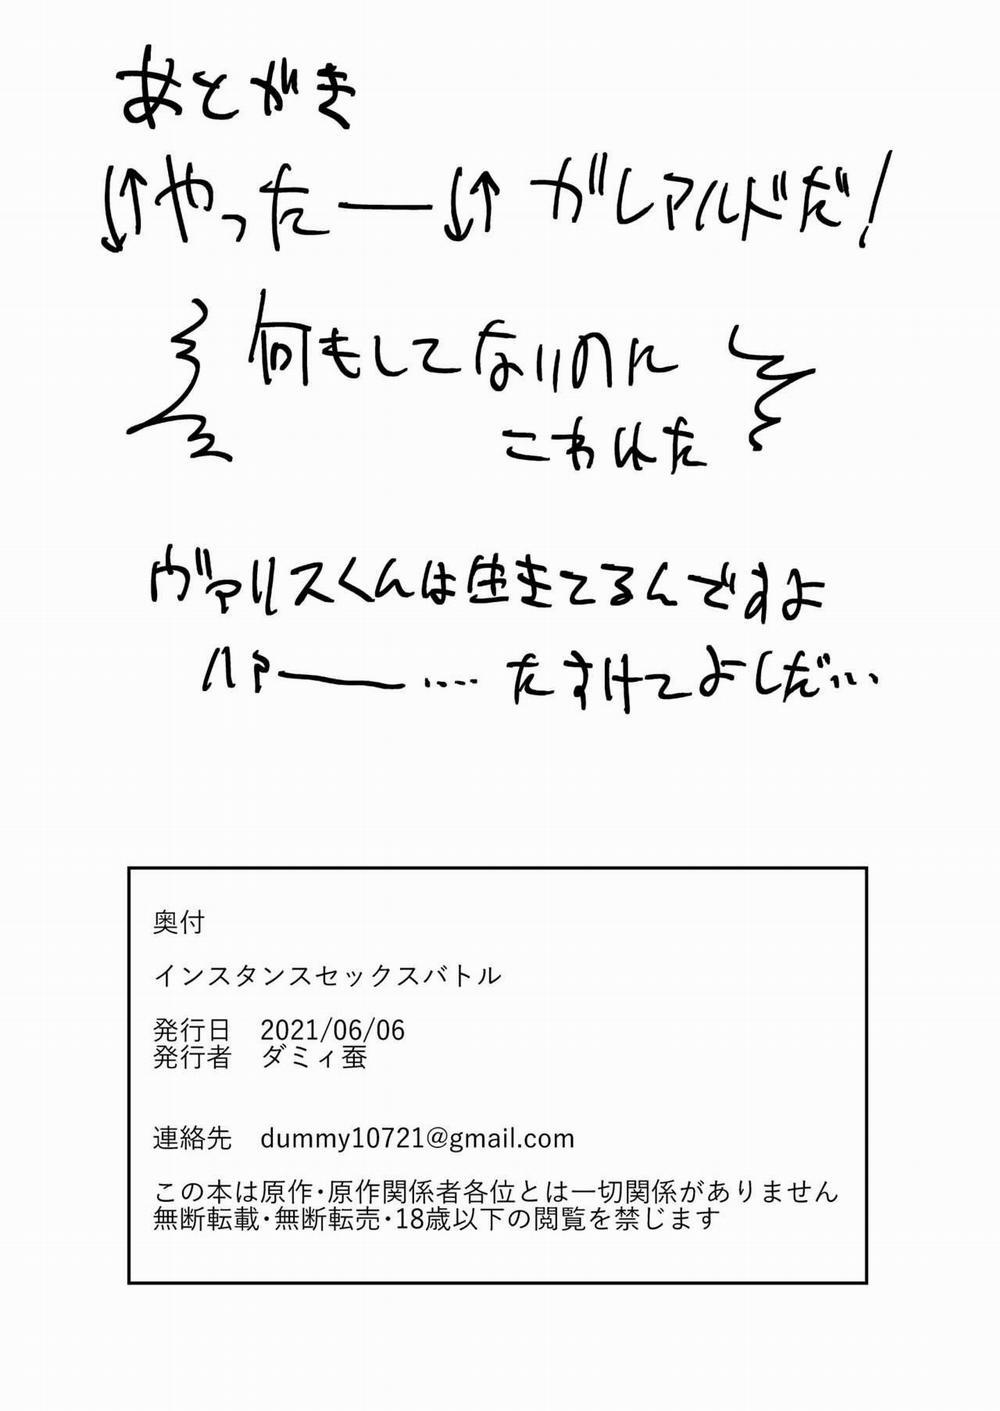 あとがき
↓↑やったー↓↑ ガレアルドだ！
何もしてないのに
こわれた
ヴァリスくんは生きてるんですよ
ハァー…… たすけてよしだ……
奥付
インスタンスセックスバトル
発行日 2021/06/06
発行者 ダミィ蚕
連絡先 dummy10721@gmail.com
この本は原作･原作関係者各位とは一切関係がありません
無断転載･無断転売･18歳以下の閲覧を禁じます